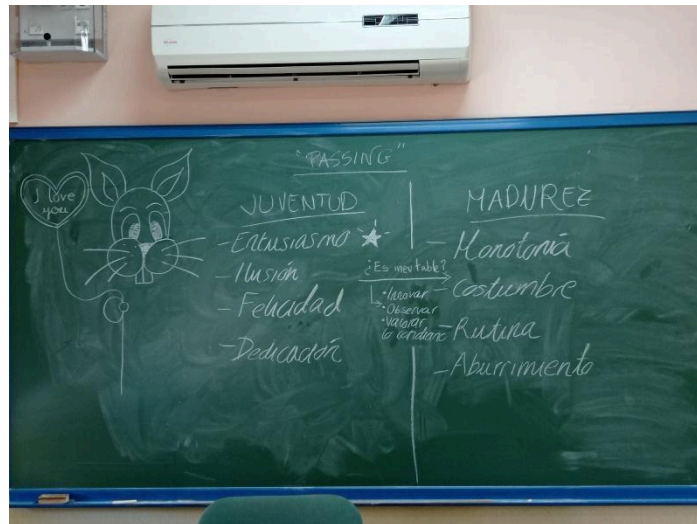 I love
you
"PASSING"
JUVENTUD
- Entusiasmo
- Ilusión
- Felicidad
- Dedicación
¿Es inevitable?
• Innovar
• Observar
• Valorar
lo cotidiano
MADUREZ
- Monotonía
- Costumbre
- Rutina
- Aburrimiento